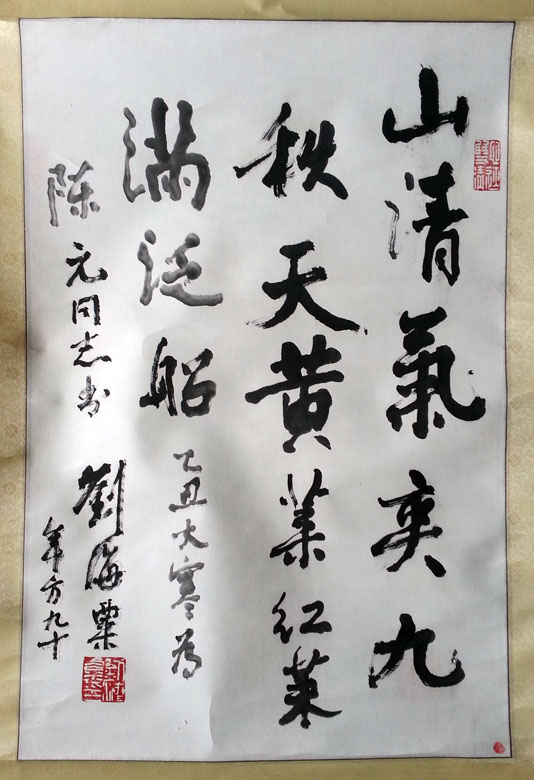 山清氣爽九
秋天黄菊红茱
满泛船 乙丑大寒為
陈元同志书
劉海粟
年方九十